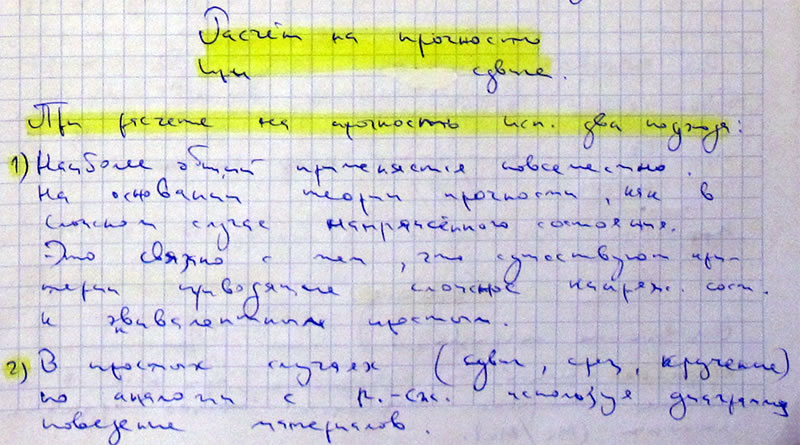 Расчёт на прочность
при сдвиге.
При расчете на прочность исп. два подхода:
1) Наиболее общий применяется повсеместно.
на основании теории прочности, как в
сложном случае напряжённого состояния.
Это связно с тем, что существуют кри-
терии приводящие сложное напряж. сост.
к эквивалентным простым.
2) В простых случаях (сдвиг, срез, кручение)
по аналогии с р.-сж. используя диаграммы
поведение материалов.